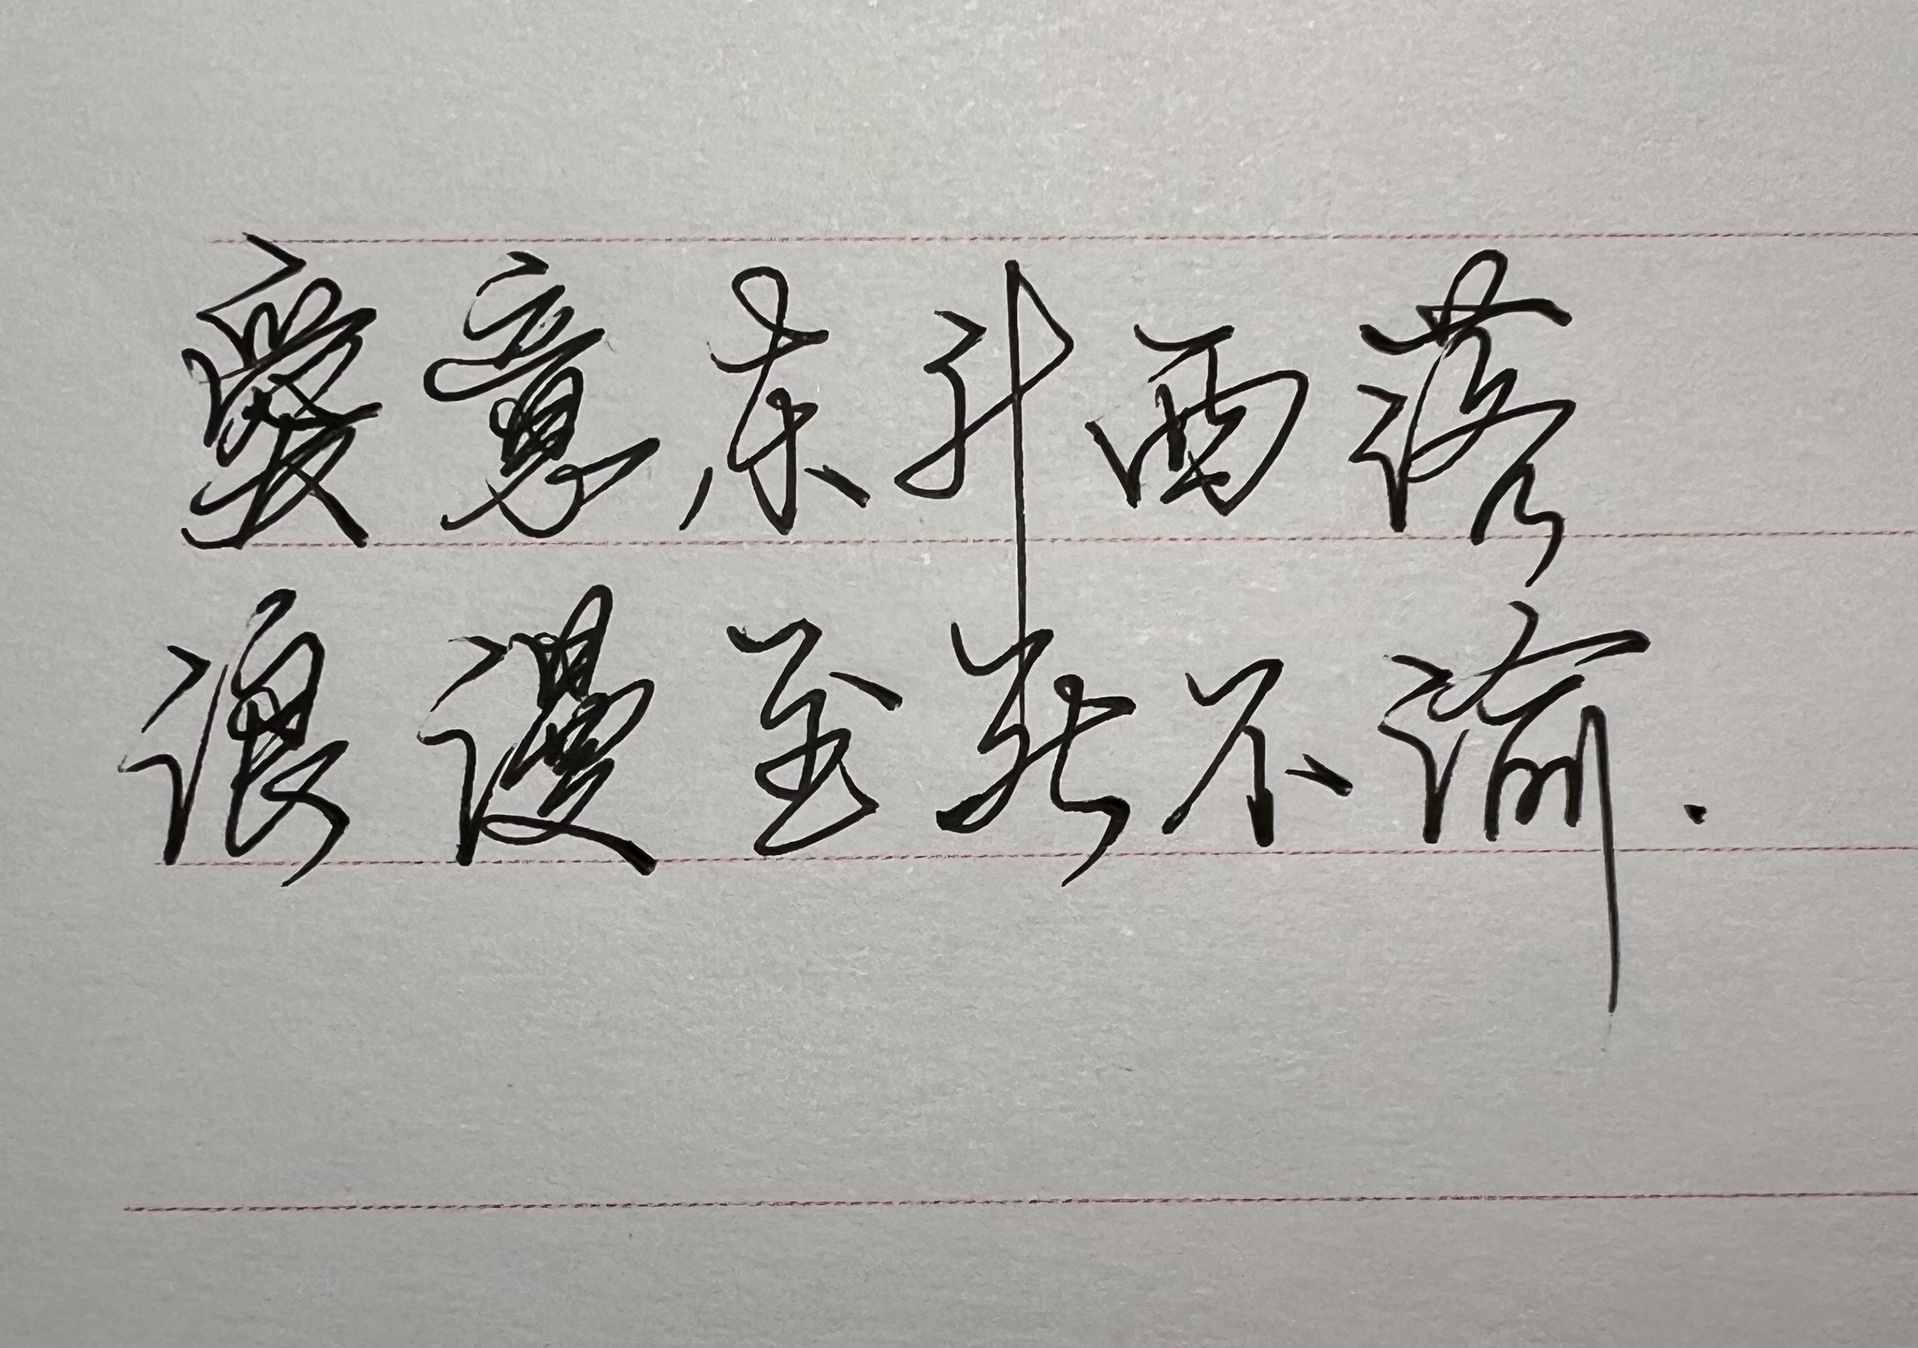 爱意东升西落
浪漫至死不渝.